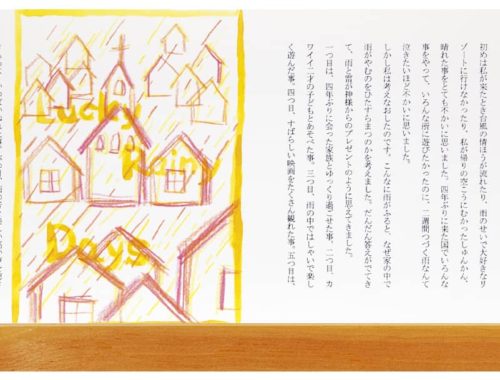 初めは私が来たとき台風の情ほうが流れたり、雨のせいで大好きなリ
ゾートに行けなかったり、私が帰りの空こうにむかったしゅんかん、
晴れた事をとても不かいに思いました。四年ぶりに来た国でいろんな
事をやって、いろんな所に遊びたかったのに、二週間つづく雨なんて
泣きたいほど不かいに思いました。
しかし私は考えなおしたのです。こんなに雨がふると、なぜ家の中で
雨がやむのをひたすらまつのかを考えました。だんだん答えがでてき
て、雨と雷が神様からのプレゼントのように思えてきました。
一つ目は、四年ぶりに会った家族とゆっくり過ごせた事、二つ目、カ
ワイイ二才の子どもとあそべた事。三つ目、雨の中ではしゃいで楽し
く遊んだ事、四つ目、すばらしい映画をたくさん観れた事、五つ目は、
Lucky
Rainy
Days